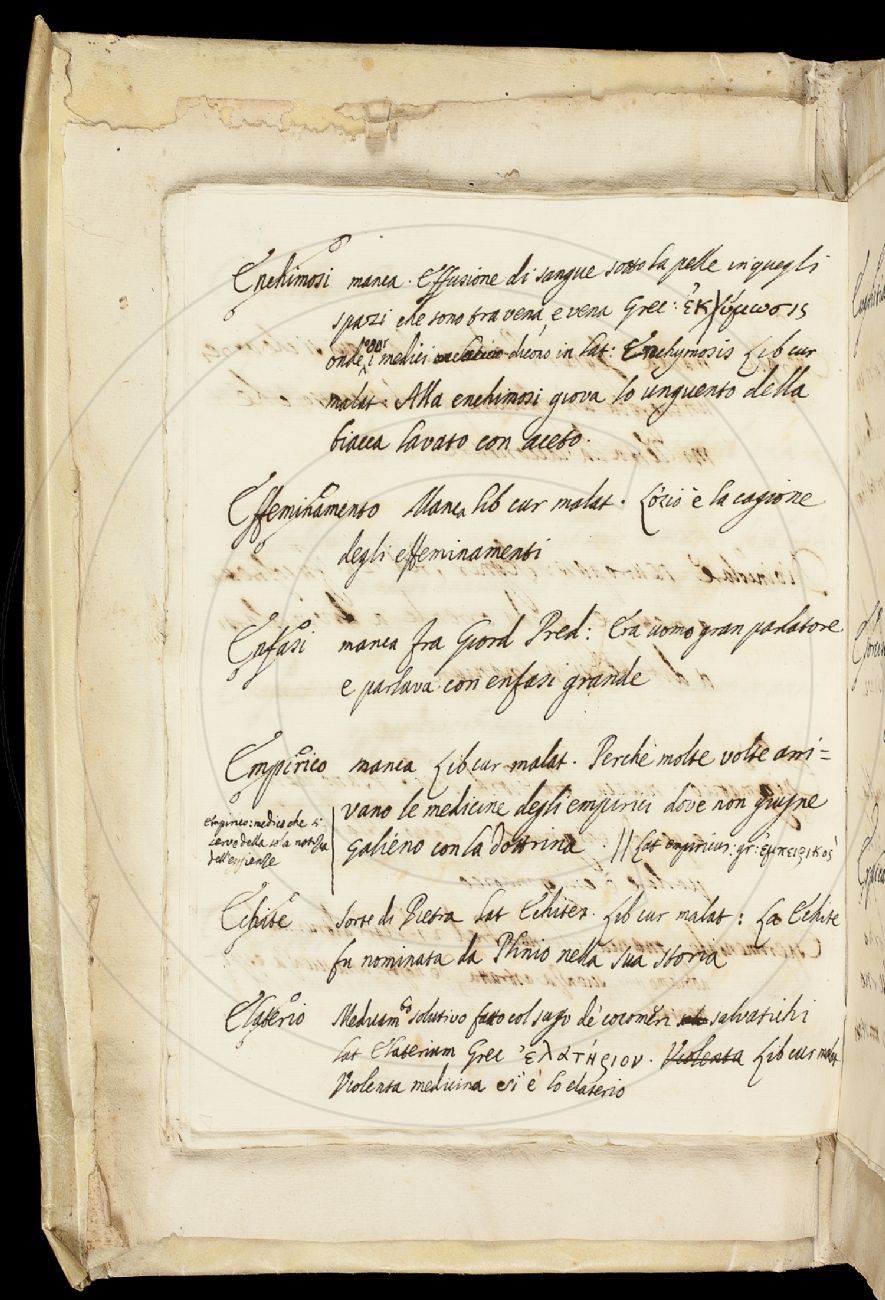 Enchimosi manca. Effusione di sangue sotto la pelle in quegli
spazi che sono tra vena, e vena Grec: ἐκχύμωσις
onde i medici dicono in Lat: Enchymosis Lib cur
malat. Alla enchimosi giova lo unguento della
biacca lavato con aceto.
Effeminamento Manca lib cur malat. L'ozio è la cagione
degli effeminamenti
Enfasi manca fra Giord Pred: Era uomo gran parlatore
e parlava con enfasi grande
Empirico manca Lib cur malat. Perchè molte volte arri=
vano le medicine degli empirici dove non giugne
galieno con la dottrina. // Lat empiricus: gr: ἐμπειρικός
Empirico: medico che si
serve della sola notizia
dell'esperienze
Echite Sorte di Pietra Lat Echites. Lib cur malat: La Echite
fu nominata da Plinio nella sua storia
Elaterio Medicam.to solutivo fatto col sugo de' cocomeri salvatichi
Lat Elaterium Grec ἐλατήριον. Violenta Lib cur malat
Violenta medicina si è lo elaterio